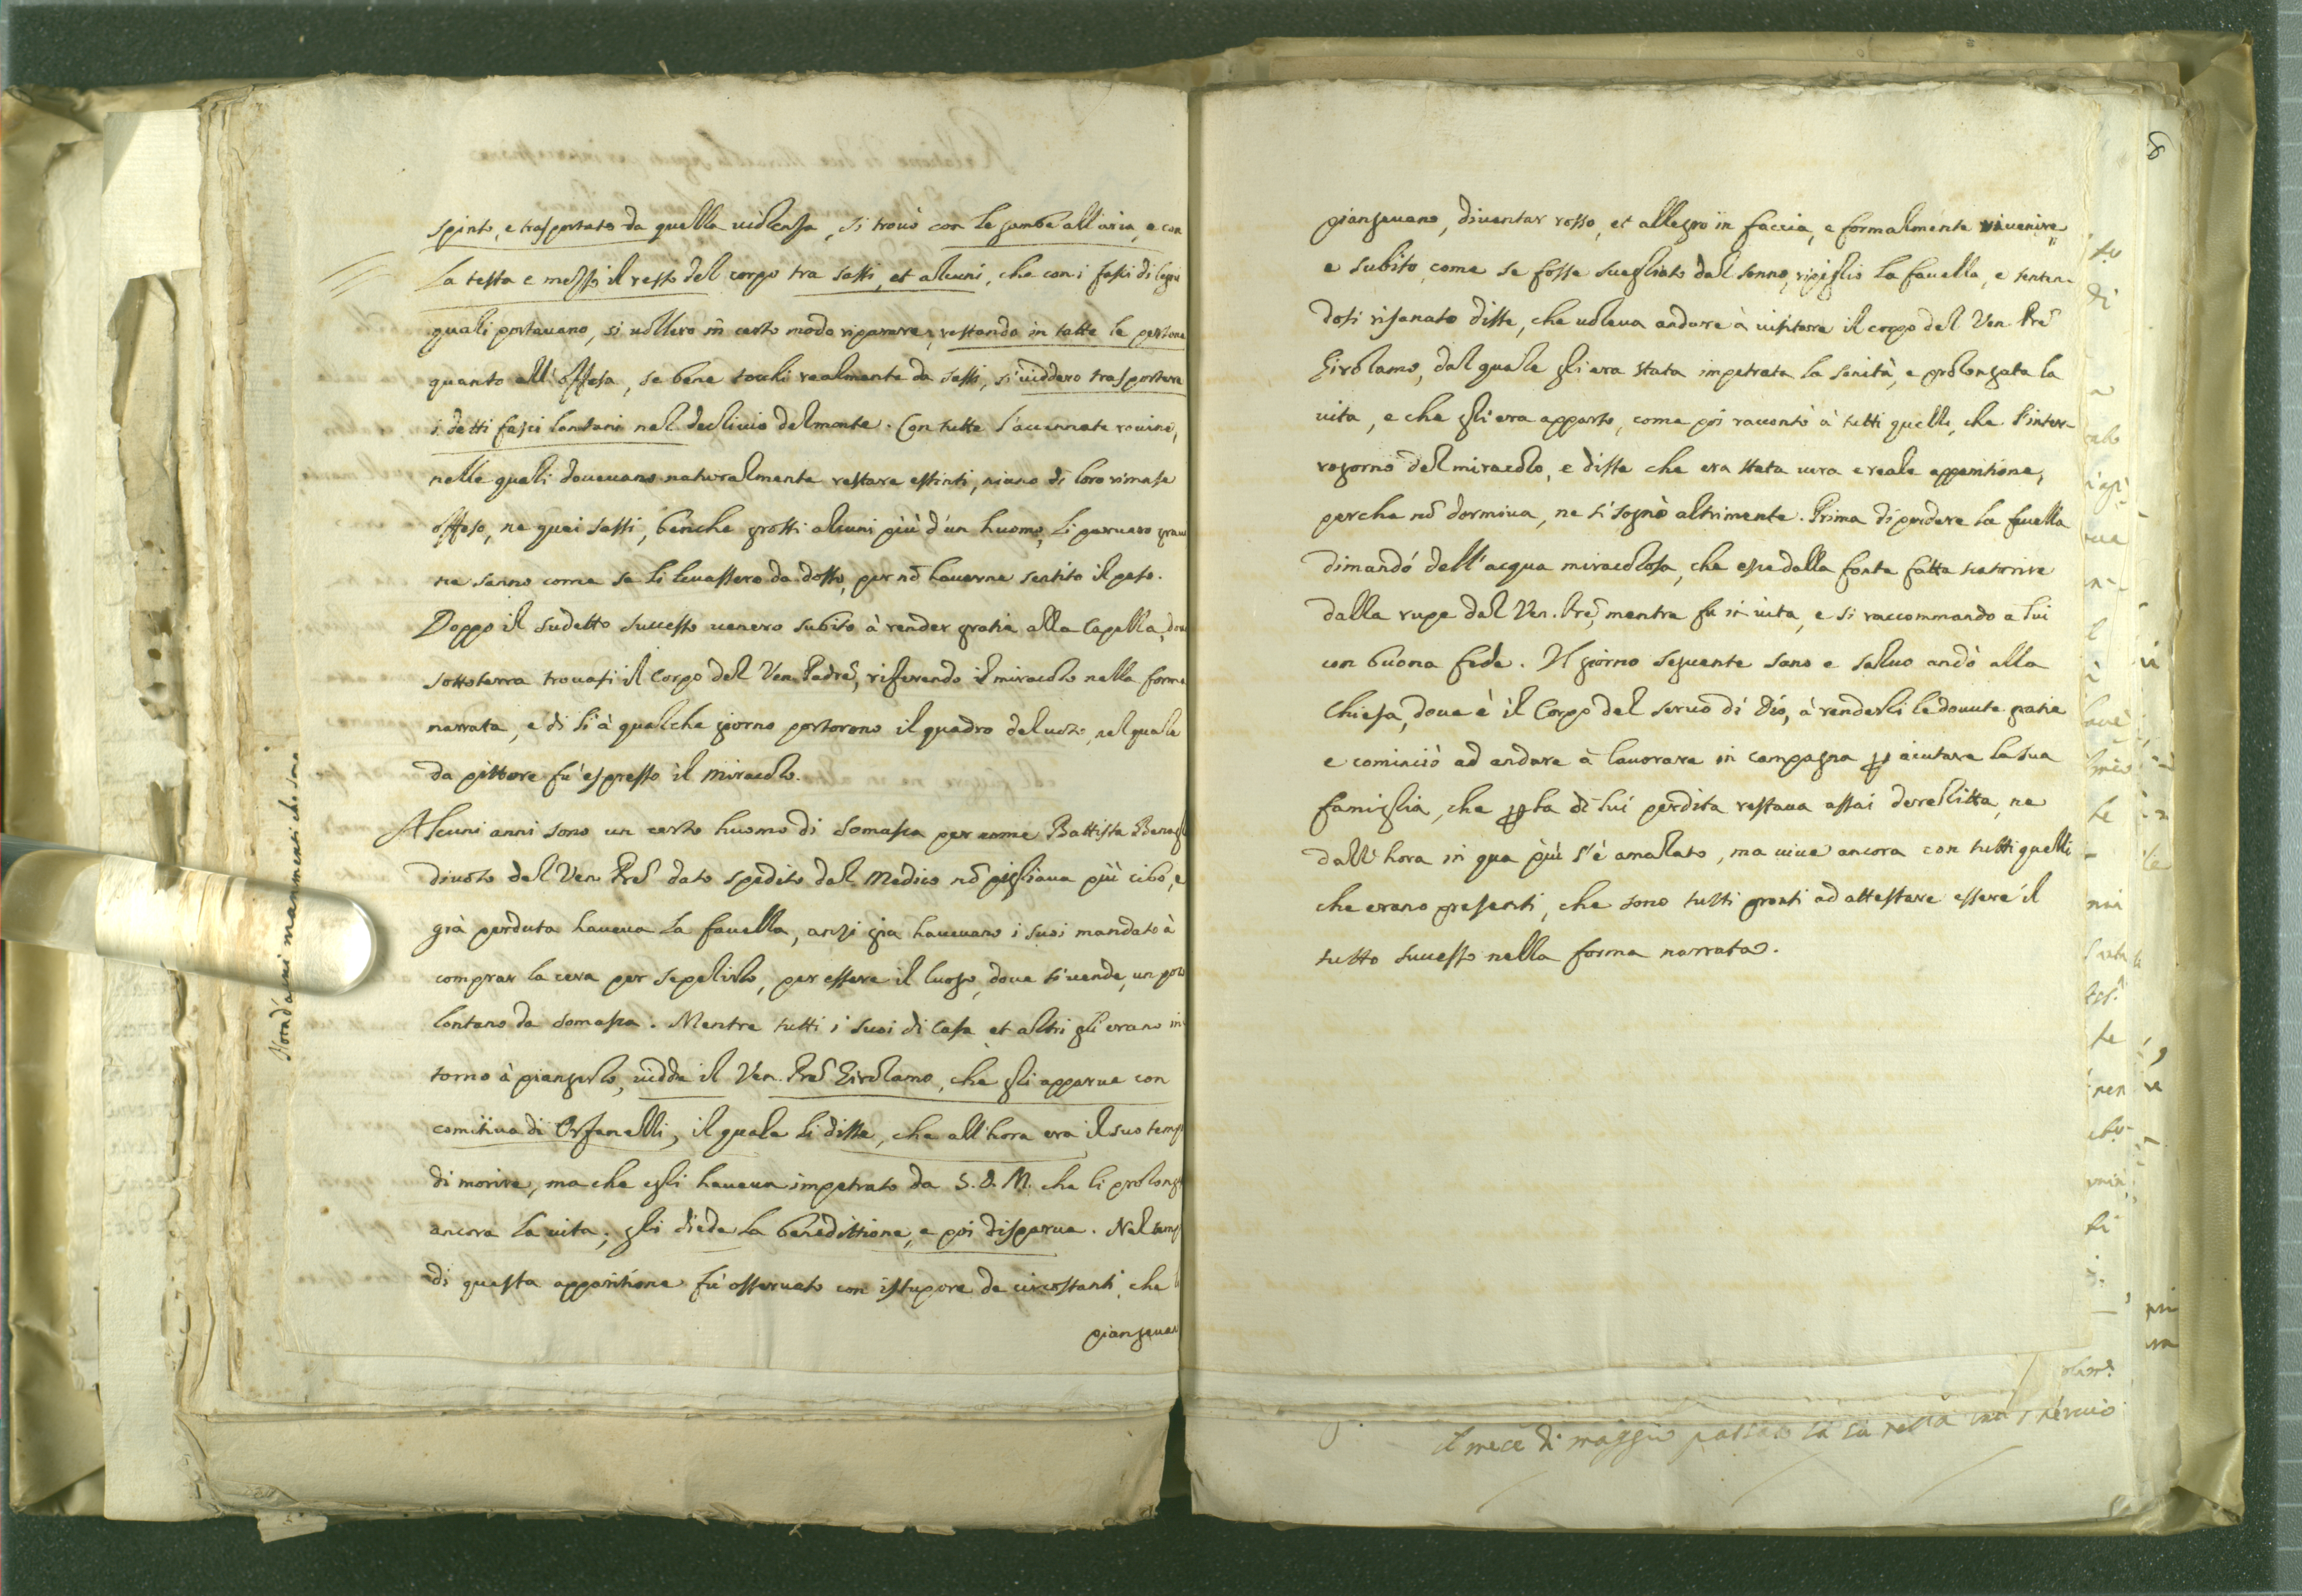 spinto, e trasportato da quella uiolenza, si trouò con le gambe all'aria, e con
la testa e mezzo il resto del corpo tra sassi, et alcuni, che con i fasci di legni
quali portauano, si uollero in certo modo riparare, restando in tatte le persone
quanto all'offesa, se bene tochi realmente da sassi, si uiddero trasportare
i detti fasci lontani nel decliuio del monte. Con tutte l'accennate rouine,
nelle quali doueuano naturalmente restare estinti, niuno di loro rimase
offeso, ne quei sassi, benche grossi alcuni più d'un huomo, li paruero graui
ne sanno come se li leuassero da dosso, per nõ hauerne sentito il peso.
Doppo il sudetto successo uenero subito à render gratie alla Capella, doue
sottoterra trouasi il Corpo del Ven. Padre, riferendo il miracolo nella forma
narrata, e di lì à qualche giorno portorono il quadro del uoto, nel quale
da pittore fù espresso il miracolo.
Alcuni anni sono un certo huomo di Somasca per nome Battista
diuoto del Ven. Prẽ dato spedito dal Medico nõ pigliaua più cibo, e
già perduta haueua la fauella, anzi gia haueuano i suoi mandato à
comprar la cera per sepelirlo, per essere il luogo, doue si uende, un poco
lontano da Somasca. Mentre tutti i suoi di casa et altri gli erano in
torno à piangerlo, uidde il Ven. Prẽ Girolamo, che gli apparue con
comitiua di Orfanelli, il quale li disse, che all'hora era il suo temp
di morire, ma che egli haueua impetrato da S. D. M. che li prolong
ancora la uita; gli diede la benedittione, e poi disparue. Nel temp
di questa apparitione fù osseruato con istupore da circostanti, che
piangeua
8
piangeuano, diuentar rosso, et allegro in faccia, e formalmente riuenire
e subito, come se fosse suegliato dal sonno, ripigliò la fauella, e senten-
dosi risanato disse, che uoleua andare à uisitare il corpo del Ven. Prẽ
Girolamo, dal quale gli era stata impetrata la sanità, e prolongata la
uita, e che gli era apparso, come poi raccontò à tutti quelli, che l'inter-
rogorno del miracolo, e disse che era stata uera e reale apparitione,
perche nõ dormiua, ne si sognò altrimente. Prima di perdere la fauella
dimandò dell'acqua miracolosa, che esce dalla fonte fatta scaturire
dalla rupe dal Ven. Prẽ, mentre fu in uita, e si raccommandò a lui
con buona fede. Il giorno seguente sano e saluo andò alla
Chiesa, doue è il Corpo del seruo di Dio, à renderli le douute gratie
e cominciò ad andare à lauorare in campagna p aiutare la sua
famiglia, che p la di lui perdita restaua assai derelitta, ne
dall'hora in qua più s'è amalato, ma uiue ancora con tutti quelli
che erano presenti, che sono tutti pronti ad attestare essere il
tutto successo nella forma narrata.
il mece di maggio passato